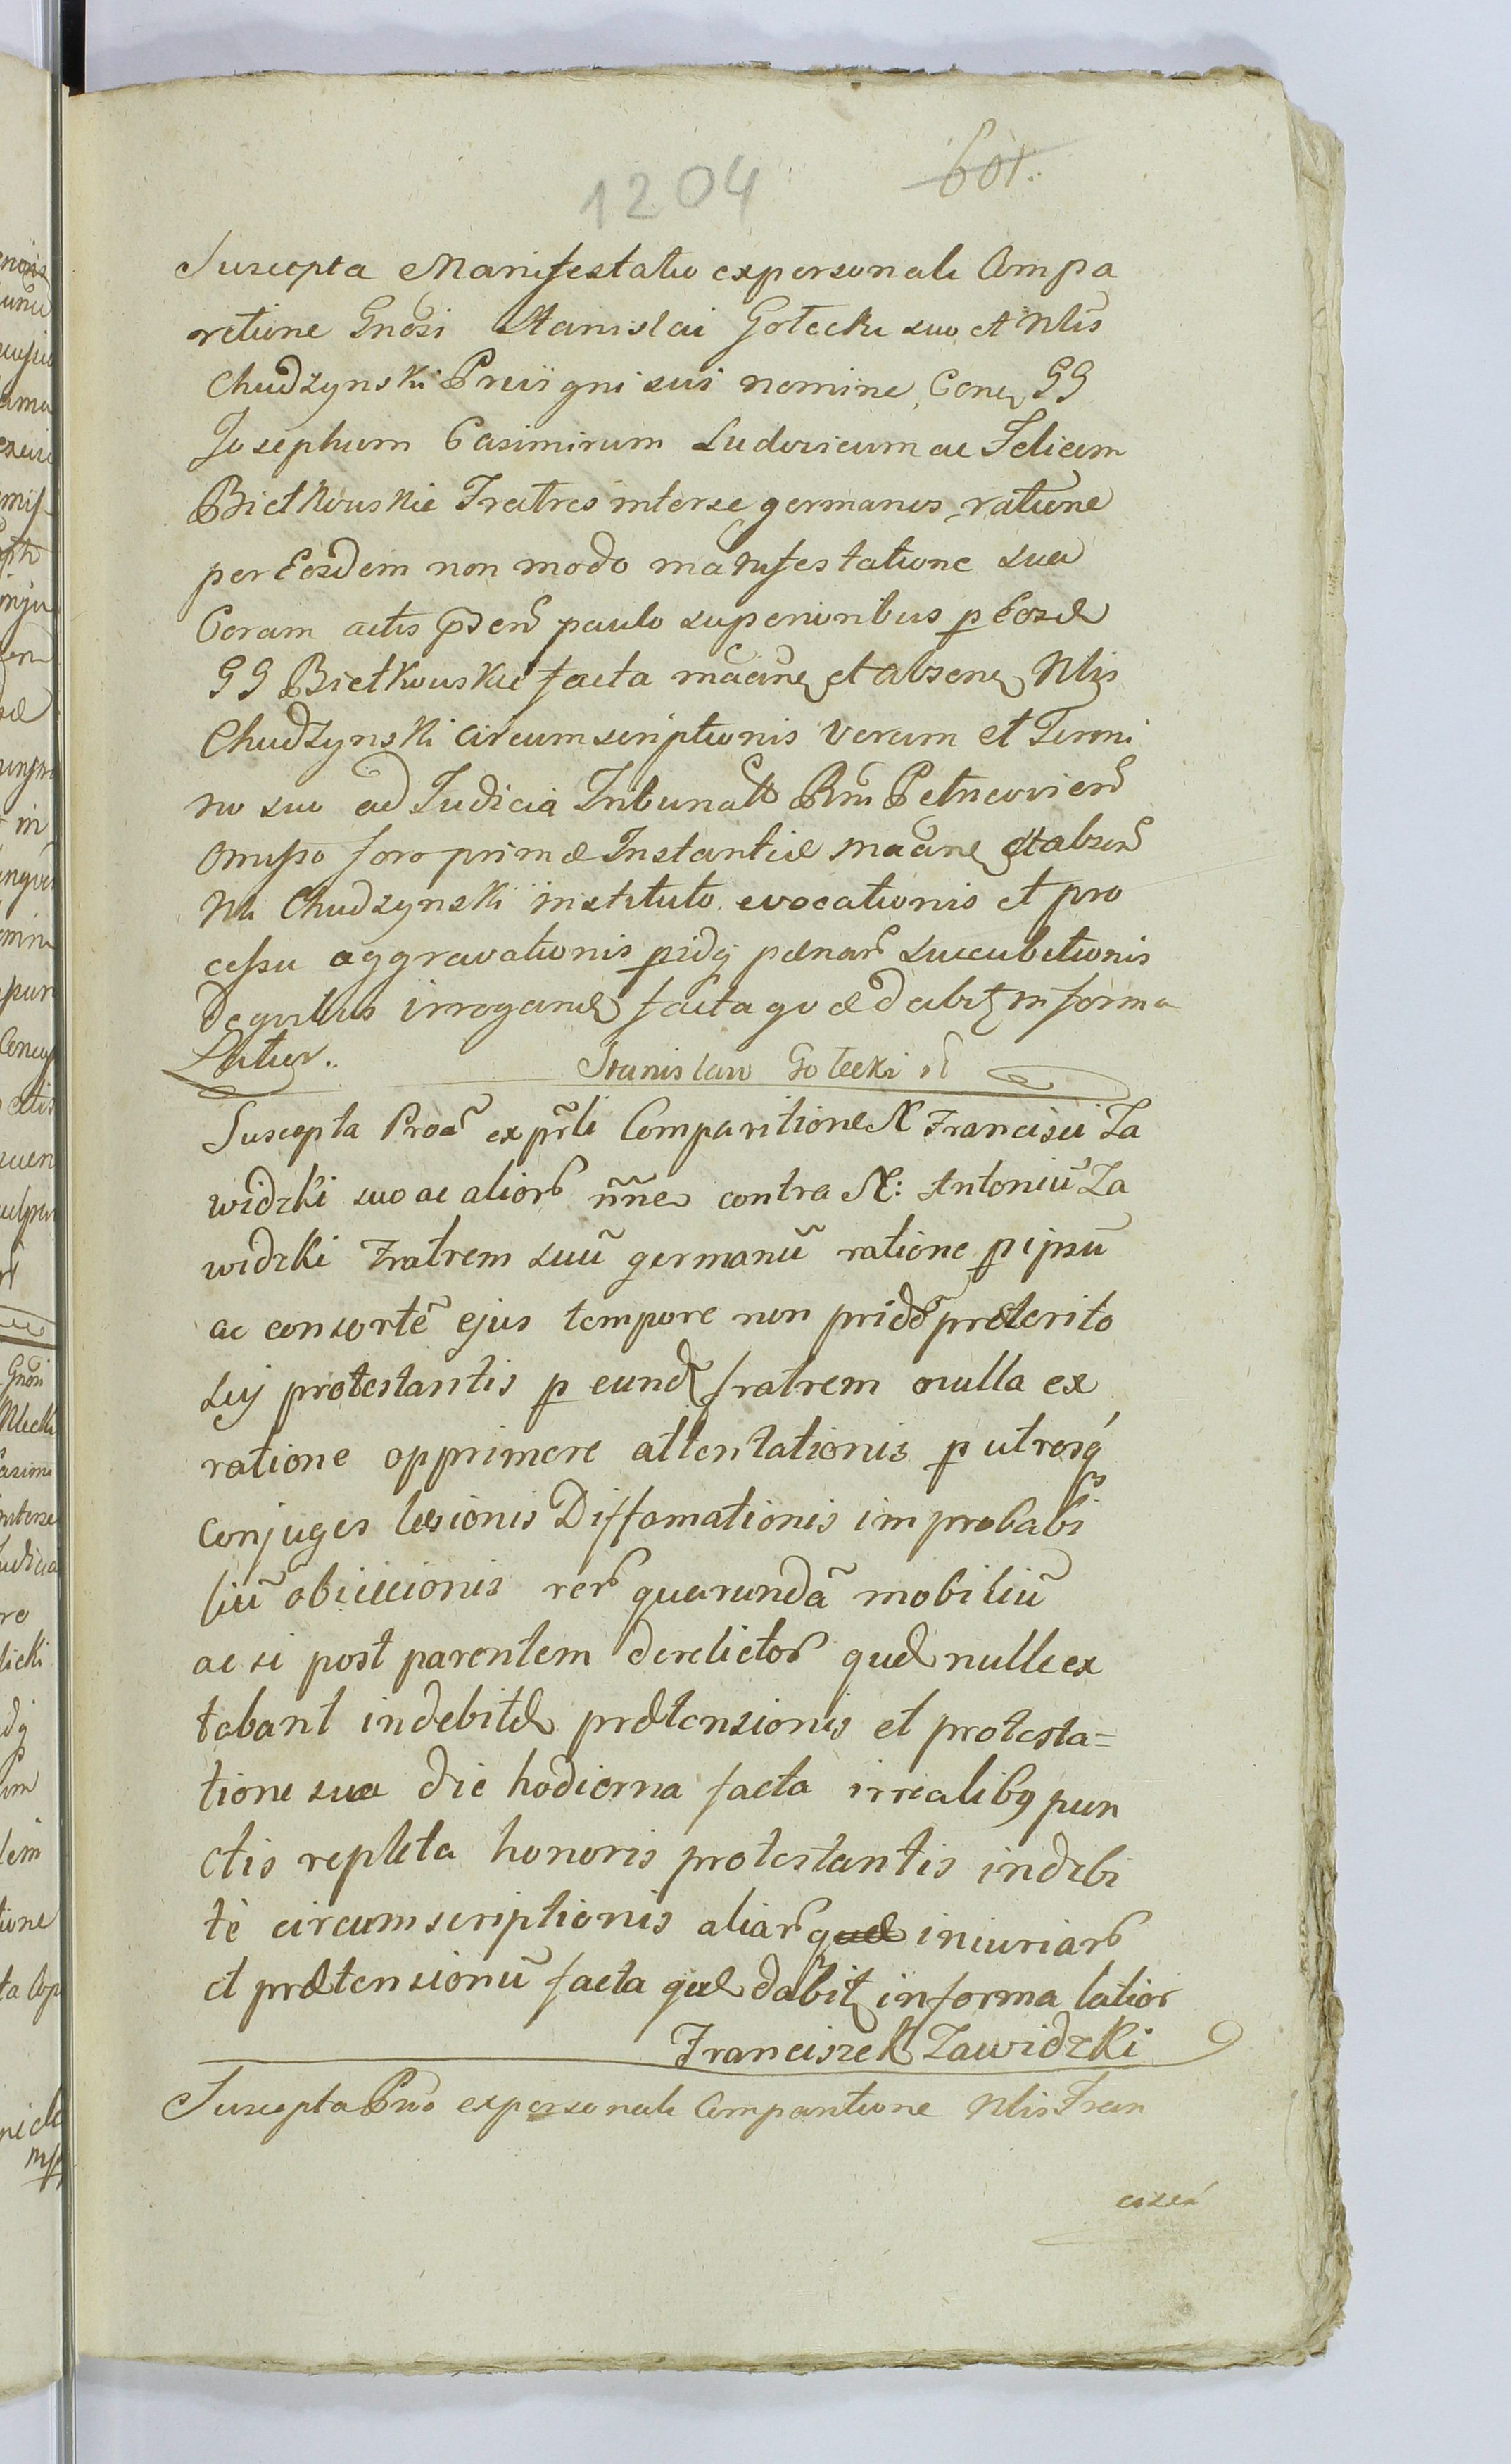 1204 601.
Suscepta Manifestatio expersonali Compa
ritione Gnosi Stanislai Gołecki suo et Nlis
Chudzynski Privigni sui nomine, Cone GG
Josephum Casimirum Ludovicum ac Felicem
Biełkowskie Fratres interse germanos, ratione
per Eosdem non modo manifestatione sua
Coram actis pñden paulo superioribus p Eosd
GG Biełkowskie facta mãcine et absene Nlis
Chudzynski circumscriptionis verum et Termi
no suo ad Judicia Tribunalis Rni Petricovien
omisso foro primæ Instantiæ mãcine et absen
Nli Chudzynski instituto evocationis et pro
cessu aggravationis pidq pænar succubitionis
de quibus irrogand facta quæ dabit in forma
Latior.
Stanisław Gołecki
Suscepta Proã ex prli Comparitione N Francisci Za
widzki suo ac alior ñne contra N: Antoniũ Za
widzki Fratrem suũ germanũ ratione p ipsũ
ac consortẽ ejus tempore non pridẽ præterito
sui protestantis p eund fratrem nulla ex
ratione opprimere attentationis p utrosq
conjuges læsionis Diffamationis improbabi
liũ obiiccionis rer quarundã mobiliũ
ac si post parentem derelictor quæ nulle ex
tabant indebitæ prætensionis et protesta=
tione sua die hodierna facta irrealibq pun
ctis repleta honoris protestantis indebi
tè circumscriptionis aliarq iniuriar
et prætensionũ facta quæ dabit in forma latior
Franciszek Zawidzki
Suscepta Pro expersonali Comparitione Nlis Fran
cisci